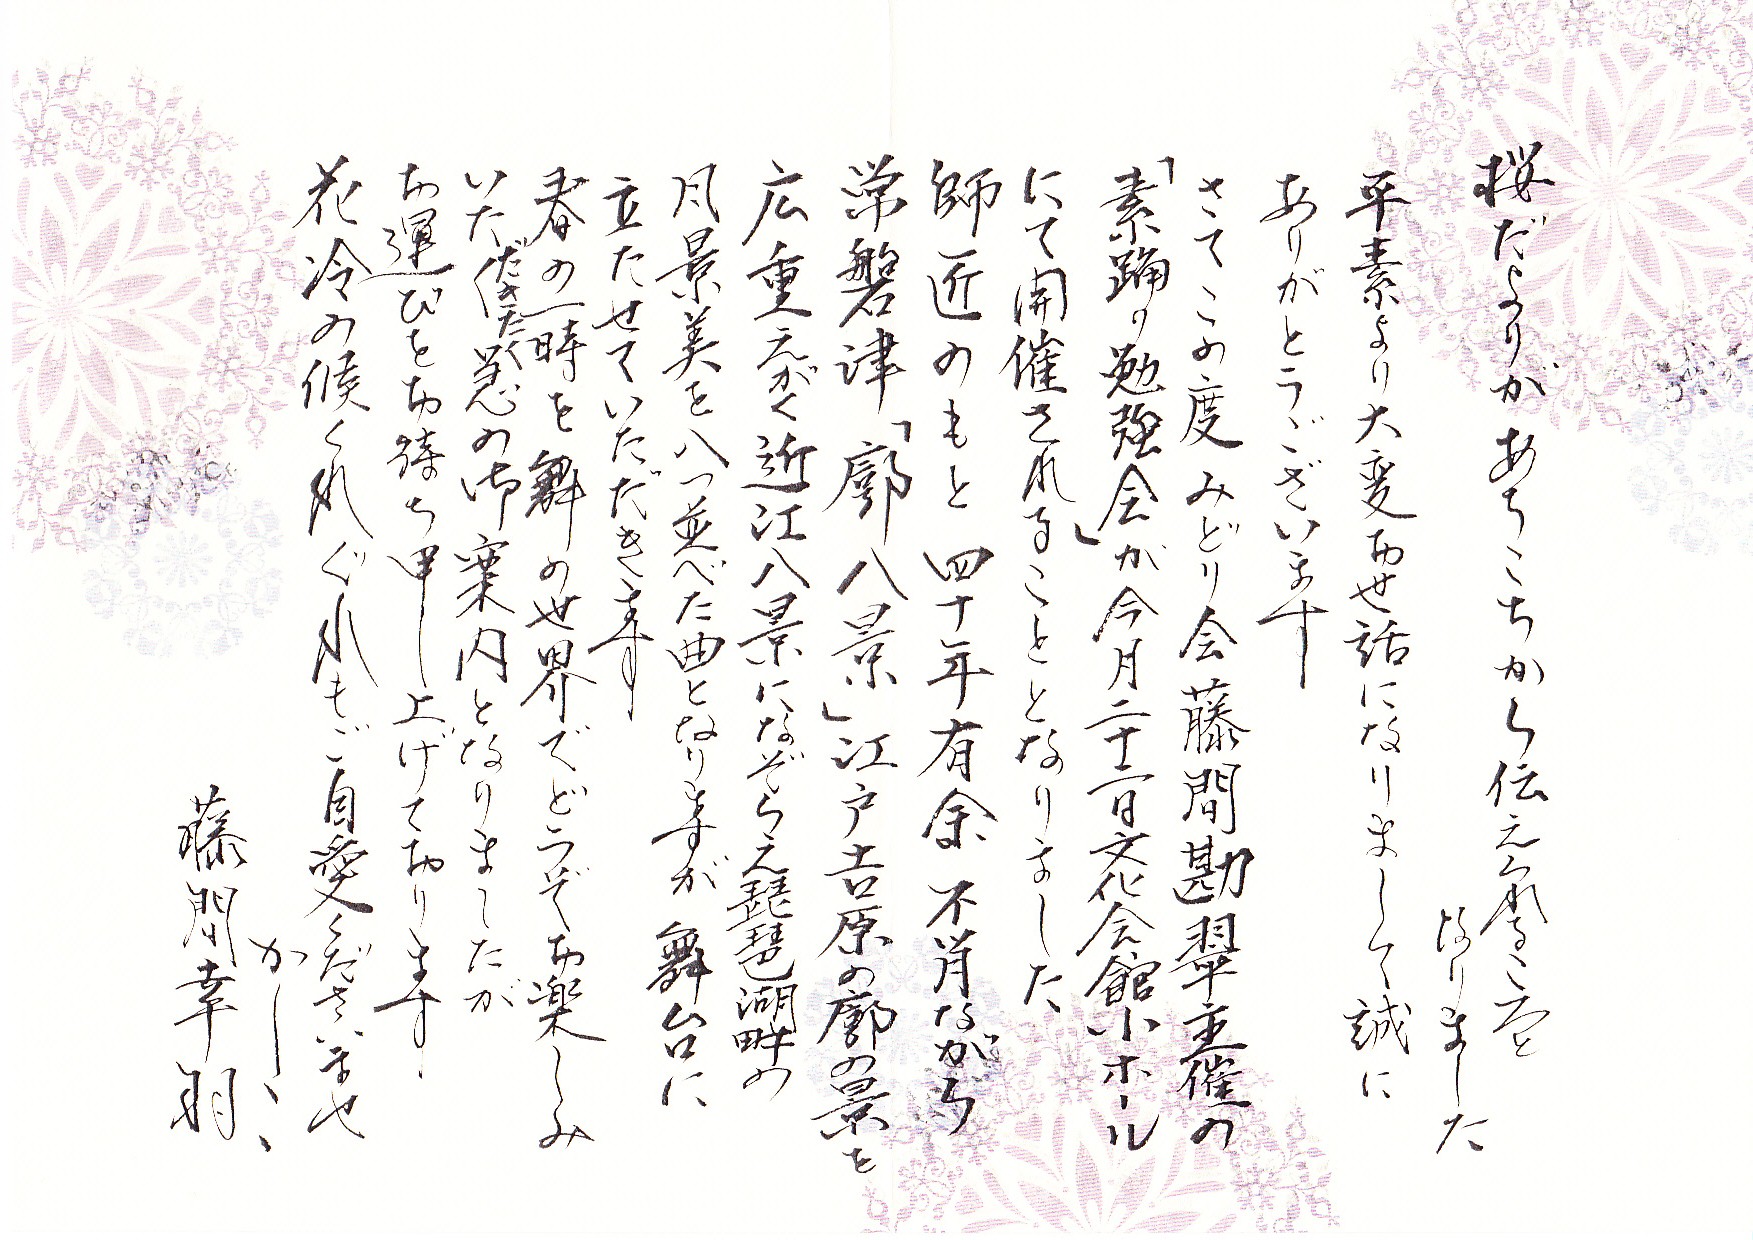 桜だよりがあちこちから伝えられるころと
なりました
平素より大変お世話になりまして誠に
ありがとうございます
さてこの度みどり会藤間勘翠主催の
「素踊り勉強会」が今月二十一日文化会館小ホール
にて開催されることとなりました
師匠のもと四十年有余 不肖ながら
常磐津「廓八景」江戸吉原の廓の景を
広重えがく近江八景になぞらえ琵琶湖畔の
風景美を八つ並べた曲となりますが舞台に
立たせていただきます
春の一時を舞の世界でどうぞお楽しみ
いただきたく急の御案内となりましたが
お運びをお待ち申し上げております
花冷の候くれぐれもご自愛くださいませ
かしこ
藤間幸羽